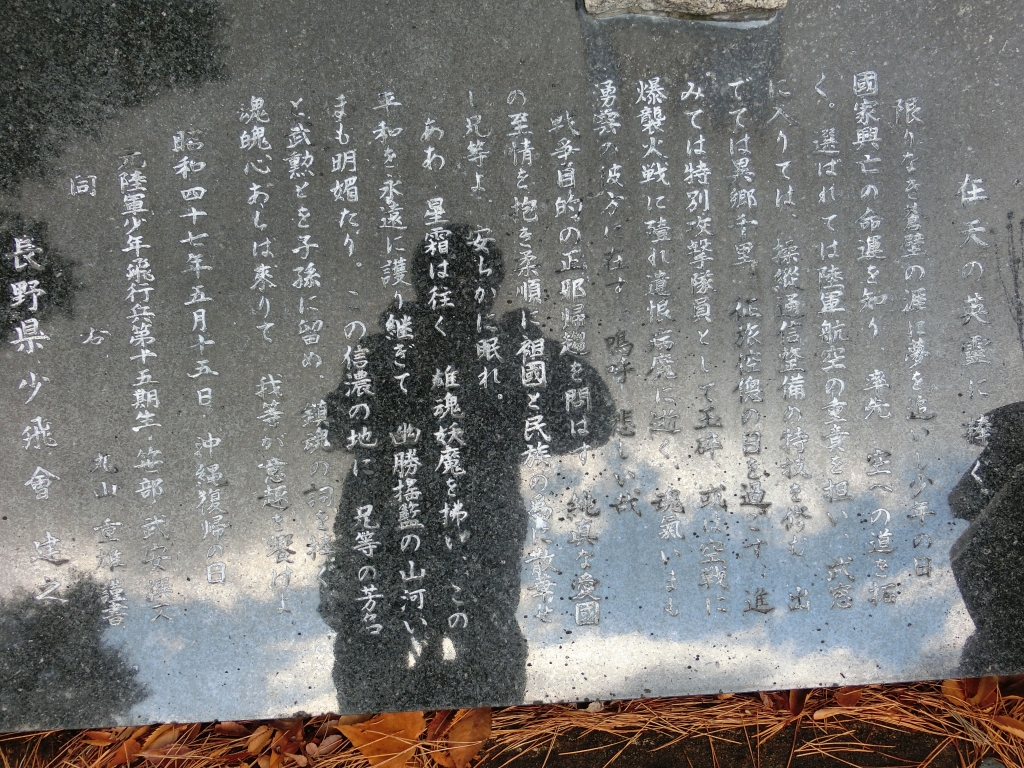 在天の英霊に捧ぐ
限りなき蒼空の涯に夢を追いし少年の日
國家興亡の命運を知り 率先 空への道を拓
く。選ばれては陸軍航空の重責を担い 武窓
に入りては、操縦通信整備の特技を修む 出
でては異郷千里 征旅倥偬の日を過ごす、進
みては特別攻撃隊員として玉砕 或は空戦に
爆襲火戦に殪れ遺恨 魔に逝く 魂氣いまも
湧雲の波 に在す 鳴呼 悲しい哉
戦争目的の正邪帰趨を問はず 純真な愛國
の至情を抱き柔順に祖國と民族の為に散華せ
し兄等よ、安らかに眠れ。
ああ 星霜は往く 雄魂妖魔を拂い、この
平和を永遠に護り継ぎて 幽勝揺籃の山河い
まも明媚たり。この信濃の地に 兄等の芳名
と武勲とを子孫に留め、鎮魂の詞を捧ぐ
魂魄心あらは来りて 我等が意想を饗けよ
昭和四十七年五月十五日 沖縄復帰の日
元陸軍少年飛行兵第十五期生 笠部 武安 文
同 右 丸山 重雄 謹書
長野県少飛會 建之